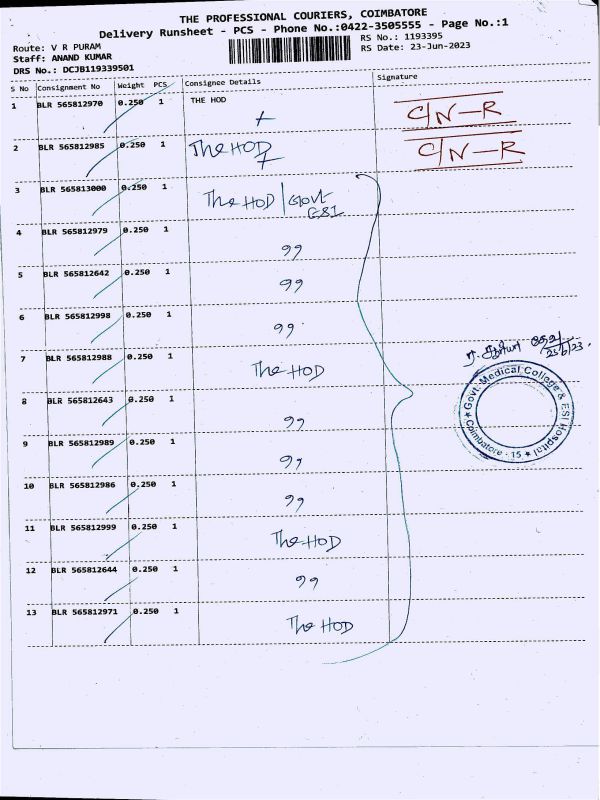 THE PROFESSIONAL COURIERS, COIMBATORE
Delivery Runsheet - PCS - Phone No.:0422-3505555 - Page No.:1
Route: V R PURAM
RS No.: 1193395
Staff: ANAND KUMAR
RS Date: 23-Jun-2023
DRS No.: DCJB119339501
S No Consignment No Weight PCS Consignee Details Signature
1 BLR 565812970 0.250 1 THE HOD C/N-R
2 BLR 565812985 0.250 1 The HOD C/N-R
3 BLR 565813000 0.250 1 The HOD | Govt ESI
4 BLR 565812979 0.250 1 99
5 BLR 565812642 0.250 1 99
6 BLR 565812998 0.250 1 99
7 BLR 565812988 0.250 1 The HOD
8 BLR 565812643 0.250 1 99
9 BLR 565812989 0.250 1 99
10 BLR 565812986 0.250 1 99
11 BLR 565812999 0.250 1 The HOD
12 BLR 565812644 0.250 1 99
13 BLR 565812971 0.250 1 The HOD
23/6/23
★ Govt. Medical College & ESI Hospital ★ Coimbatore - 15